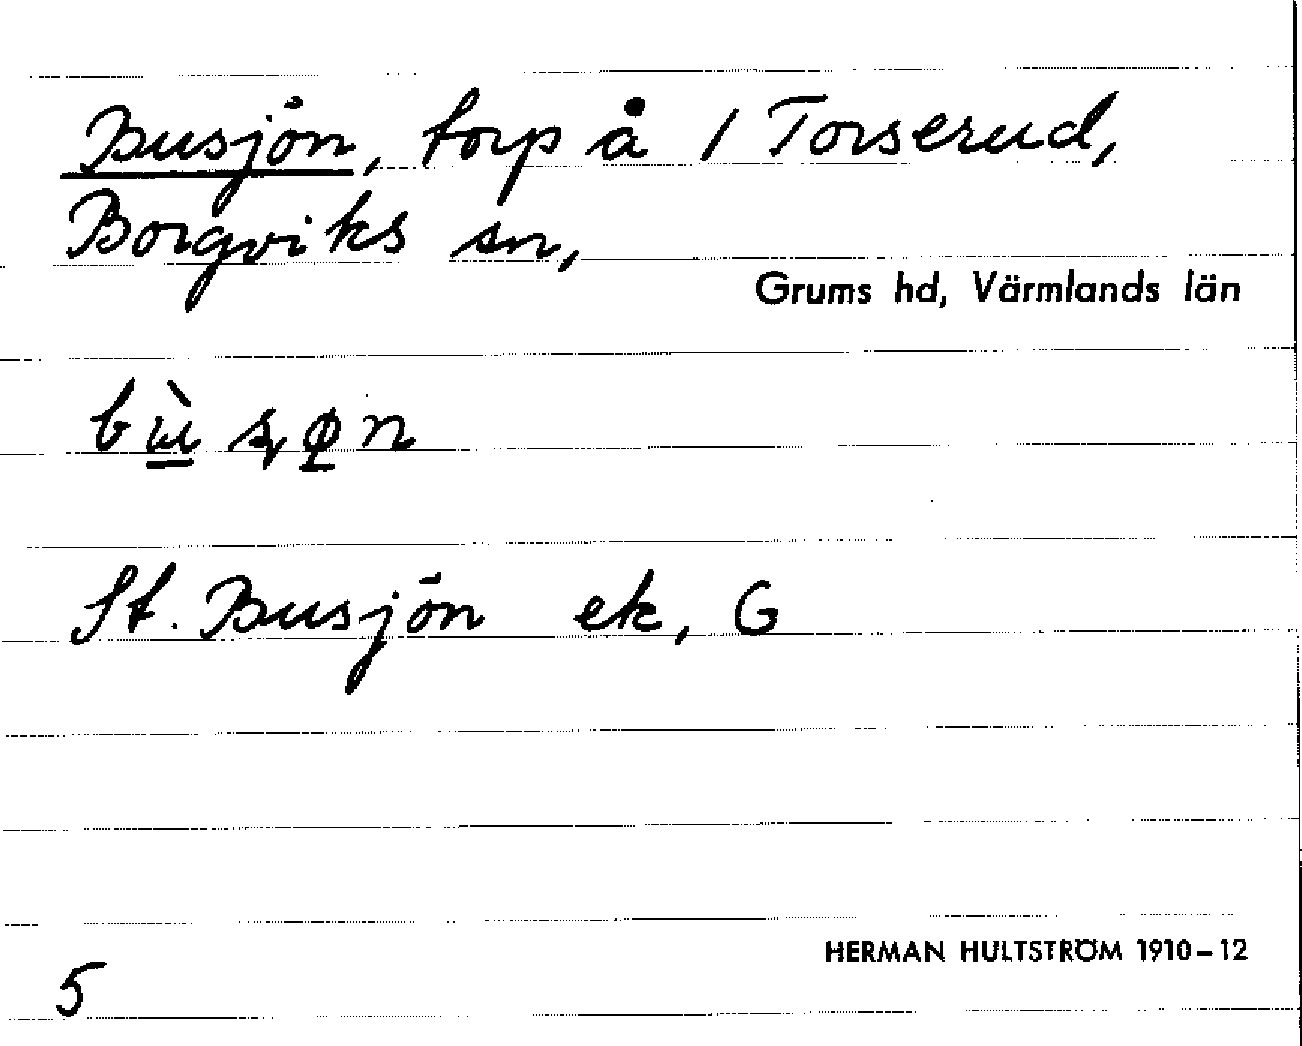 Busjön, torp å 1 Torserud,
Borgviks sn,
Grums hd, Värmlands län
bɯ̀ ʂøn
St. Busjön ek, G
HERMAN HULTSTRÖM 1910–12
5